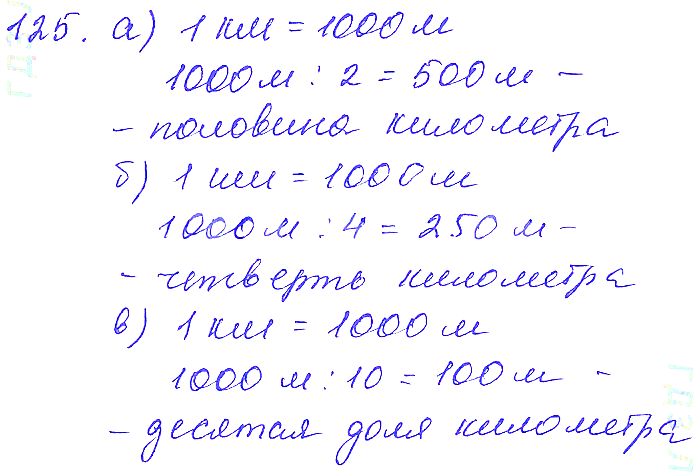 125. а) 1 км = 1000 м
1000 м : 2 = 500 м –
– половина километра
б) 1 км = 1000 м
1000 м : 4 = 250 м –
– четверть километра
в) 1 км = 1000 м
1000 м : 10 = 100 м –
– десятая доля километра